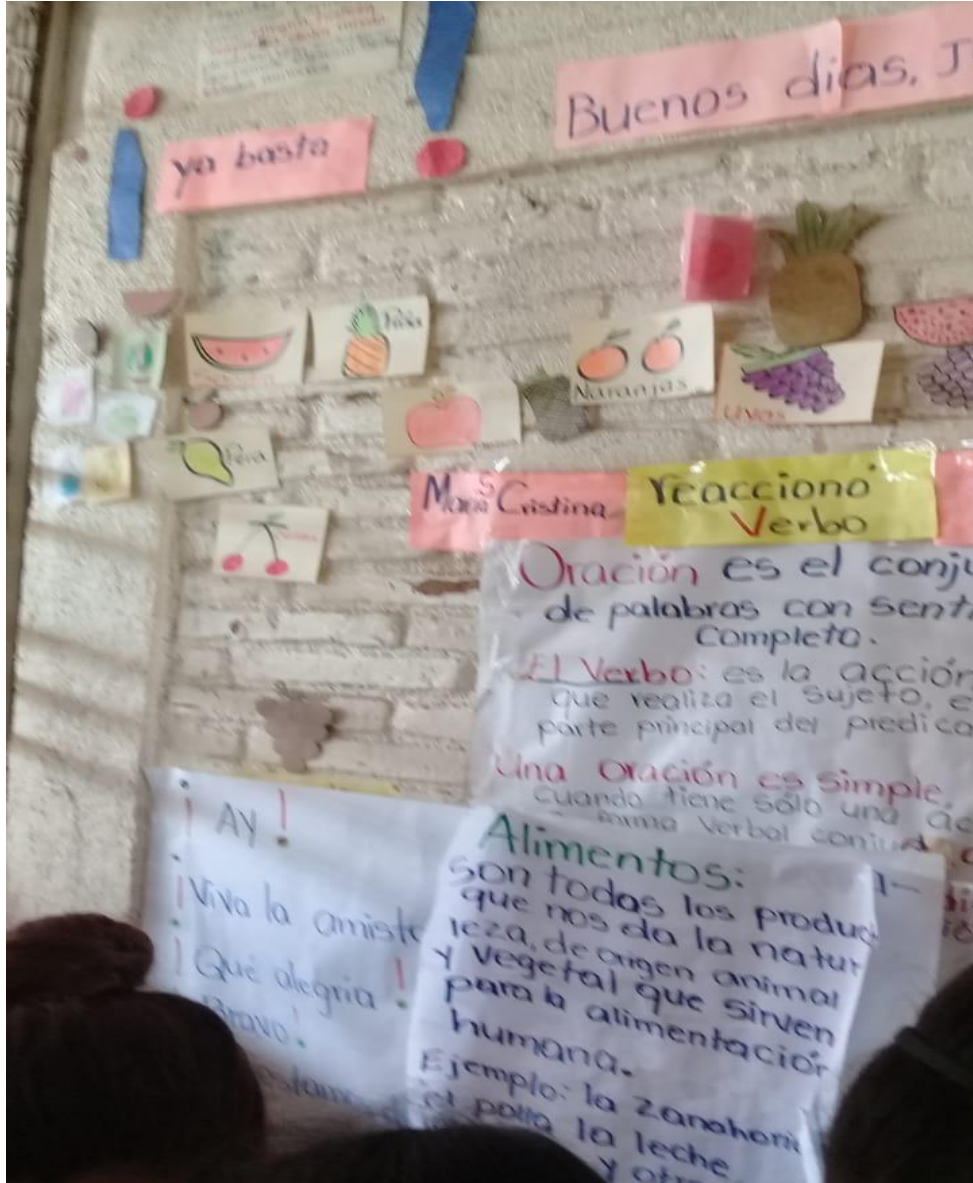 Buenos días, J
ya basta
Piña
Naranjas
Uvas
Pera
María Cristina
reacciono
Verbo
Oración es el conju
de palabras con senti
completo.
El Verbo: es la acción
que realiza el sujeto, e
parte principal del predica
Una oración es simple,
cuando tiene sólo una ac
forma verbal conjud
¡Ay!
¡Viva la amista
¡Qué alegría!
Bravo!
Alimentos:
son todas los produc
que nos da la natur
leza, de origen animal
y vegetal que sirven
para la alimentación
humana.
Ejemplo: la zanahoria
el pollo la leche
y otr